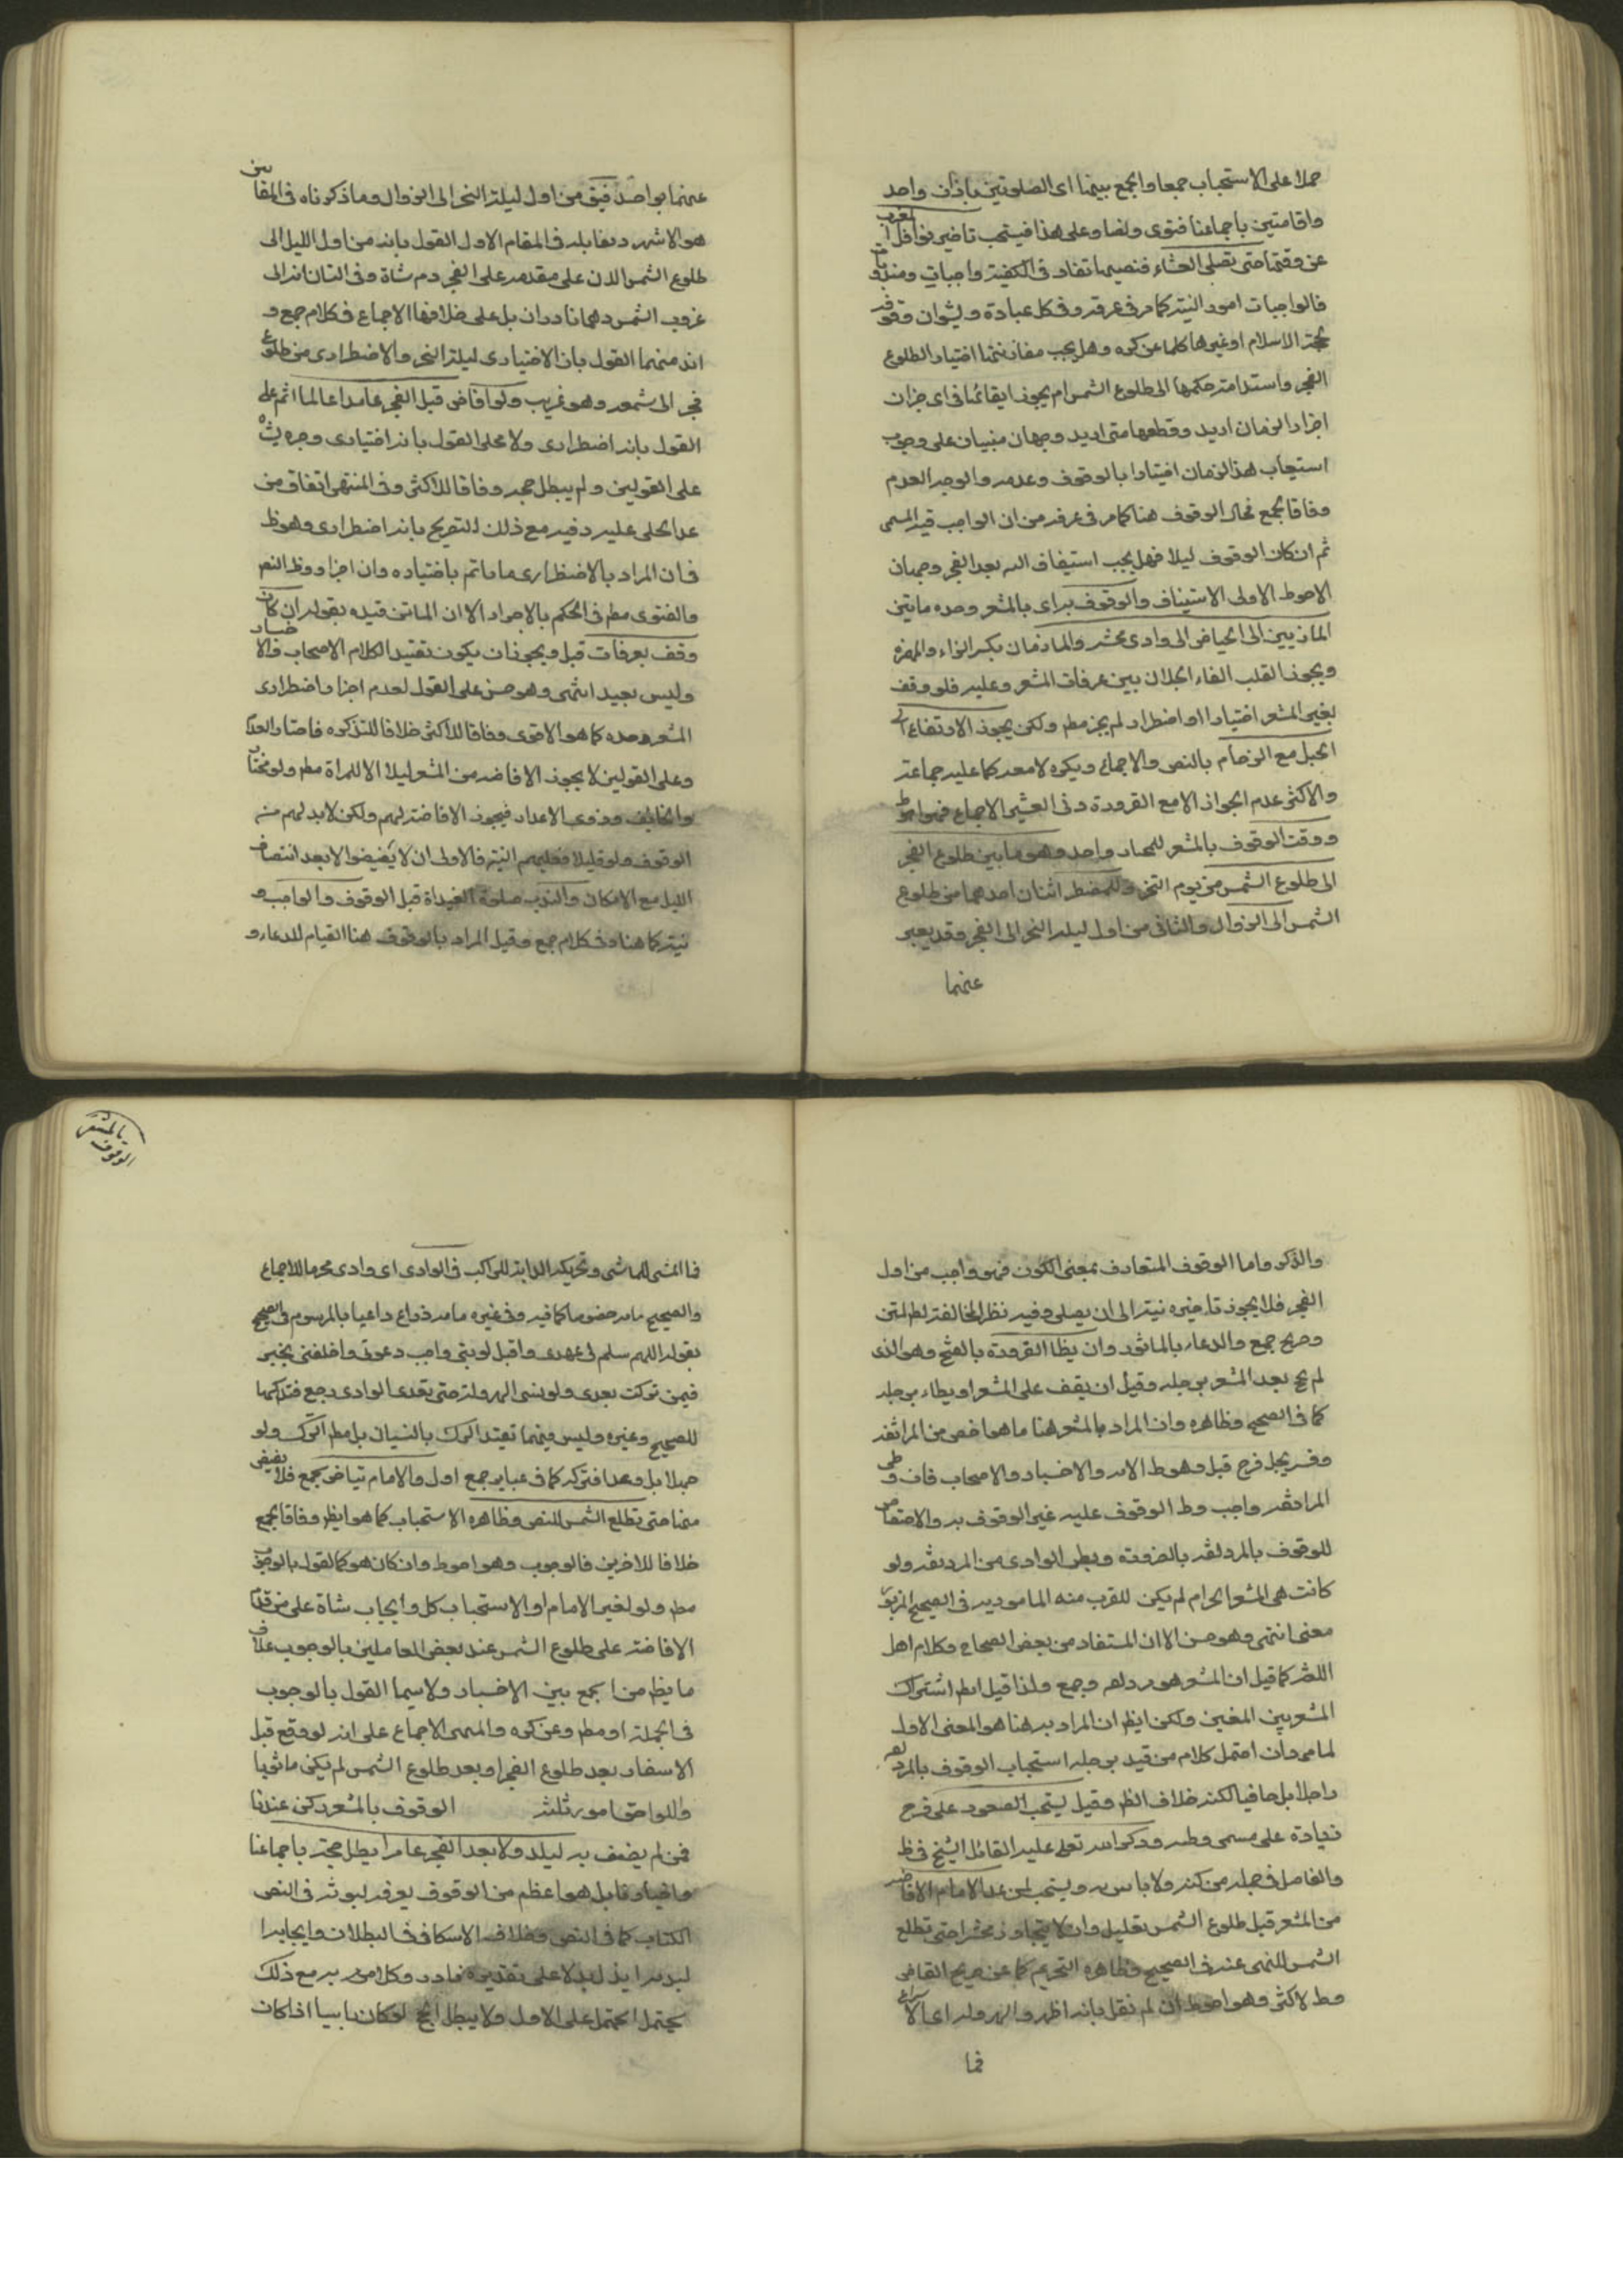 حملا على الاستحباب جمعا والجمع بينهما اى الصلوتين باذان واحد
واقامتين باجماعنا فتوى ونصا وعلى هذا فيستحب تاخير نوافل المغرب
عن وقتها حتى يصلى العشاء
فالواجبات امور النية كما مر فى عرفة وفى كل عبادة
حجة الاسلام او غيرها كلما عن كره وهل يجب مقارنتها اختيارا لطلوع
الفجر واستدامة حكمها الى طلوع الشمس ام يجوز ايقاعها فى اى جزء ان
اجزاء الزمان اريد وقطعها متى اريد وجهان مبنيان على وجوب
استيعاب هذا الزمان اختيارا بالوقوف وعدمه والوجه العدم
وفاقا لجمع هنا كما مر فى عرفة من ان الواجب فيه المسمى
ثم ان كان الوقوف ليلا فهل يجب استيناف النية بعد الفجر وجهان
الاحوط الاولى الاستيناف والوقوف براى بالمشعر وحده ما بين
المازمين الى الحياض الى وادى محسر والمازمان بكسر الزاء والهمزة
ويجوز القلب الفاء الجبلان بين عرفات المشعر وعليه فلو وقف
بغير المشعر اختيارا او اضطرارا لم يجز مطم ولكن يجوز الارتفاع الى
الجبل مع الزحام بالنص والاجماع ويكره لا معه كما عليه جماعة
والاكثر عدم الجواز الا مع الضرورة وفى الغنية الاجماع فهو احوط
ووقت الوقوف بالمشعر للمختار واحد وهو ما بين طلوع الفجر
الى طلوع الشمس من يوم النحر وللمضطر اثنان احدهما من طلوع
الشمس الى الزوال والثانى من اول ليلة النحر الى الفجر وقد يعبر
عنهما
عنهما بواحد فيق من اول ليلة النحر الى الزوال وما ذكرناه فى المقامين
هو الاشهر ويقابله فى المقام الاول القول بانه من اول الليل الى
طلوع الشمس على مقدمه على الفجر دم شاة وفى الثان انه الى
غروب الشمس وهما نادران بل على خلافها الاجماع فى كلام جمع و
اندر منهما القول بان الاختيارى ليلة النحر والاضطرارى من طلوع
فجره الى شمسه وهو غريب ولو افاض قبل الفجر عامدا عالما اثم على
القول بانه اضطرارى ولا على القول بانه اختيارى وجبره بشاة
على القولين ولم يبطل حجه وفاقا للاكثر وفى المنتهى اتفاق من
عدا الحلى عليه وفيه مع ذلك التصريح بانه اضطرارى وهو ظ
فان المراد بالاضطرارى ما ياتم باختياره وان اجزا وظ النص
والفتوى مطم فى الحكم بالاجزاء الا ان الماتن قيده بقوله ان كان
وقف بعرفات قبل ويجوز ان يكون تقييدا لكلام الاصحاب والاخبار
وليس ببعيد انتهى وهو حسن على القول لعدم اجزاء اضطرارى
المشعر وحده كما هو الاقوى وفاقا للاكثر خلافا للتذكره فاختار العدم
وعلى القولين لا يجوز الافاضه من المشعر ليلا الا للمراة مطم ولو مختارا
والخايف وذوى الاعذار فيجوز الافاضة لهم ولكن لا بد لهم منه
الوقوف ولو قليلا فعليهم النية فالاولى ان لا يفيضوا الا بعد انتصاف
الليل مع الامكان والندب صلوة الغداة قبل الوقوف والواجب و
نيته كما هنا وفى كلام جمع وقيل المراد بالوقوف هنا القيام للدعاء و
بالمشعر
الوقوف
والذكر واما الوقوف المتعارف بمعنى الكون فهو واجب من اول
الفجر فلا يجوز تاخيره نيته الى ان يصلى وفيه نظر لمخالفته لظ المتن
وصريح جمع والدعاء بالماثور وان يطا الصرورة بالفتح وهو الذى
لم يحج بعد المشعر برجله وقيل ان يقف على المشعر او يطاء برجله
كما فى الصحيح وظاهره وان المراد بالمشعر هنا ما هو اخص من المزدلفة
وفسر بجبل قزح قبل وهو ظ الامر والاخبار والاصحاب فان وطى
المزدلفة واجب وظ الوقوف عليه غير الوقوف به والاختصاص
للوقوف بالمزدلفة بالصرورة وبطن الوادى من المزدلفة ولو
كانت هى المشعر الحرام لم يكن للقرب منه المامور به فى الصحيح المزبور
معنى انتهى وهو حسن الا ان المستفاد من بعض الصحاح وكلام اهل
اللغة كما قيل ان المشعر هو مزدلفه وجمع ولذا قيل اشتراك
المشعر بين المعنيين ولكن ايظ ان المراد به هنا هو المعنى الاول
لما مر وان احتمل كلام من قيد برجله استحباب الوقوف بالمزدلفة
راجلا بل حافيا لكنه خلاف الظ وقيل يستحب الصعود على قزح
زيادة على مسمى وطئه وذكر الله تعالى عليه القائل الشيخ فى ظ
ولا باس به ويستحب لمن عدا الامام الافاضه
من المشعر قبل طلوع الشمس بقليل وان لا يتجاوز محسرا حتى تطلع
الشمس للنهى عنه فى الصحيح وظاهره التحريم كما عن صريح القاضى
وظ لاكثر وهو احوط ان لم نقل بانه اظهر والهرولة اى الاسراع
فا
فا المشى للماشى وتحريك الدابة للراكب فى الوادى اى وادى محسر للاجماع
والصحيح
بقوله اللهم سلم لى عهدى واقبل توبتى واجب دعوتى واخلفنى بخير
فيمن تركت بعدى ولو نسى الهرولة حتى تعدى الوادى رجع فتداركها
للصحيح وغيره وليس فيهما تقييد الترك بالنسيان بل مطم الترك ولو
جهلا بل وعمدا فتركه كما فى عباير جمع اول والامام يتاخر بجمع فلا يفيض
منها حتى تطلع الشمس للنص وظاهره الاستحباب كما هو ايظ وفاقا لجمع
خلافا للاخرين فالوجوب وهو احوط وان كان هو كالقول بالوجوب
مطم ولو لغير الامام او الاستحباب كل وايجاب شاة على من قدم
الافاضة على طلوع الشمس عند بعض العاملين بالوجوب خلاف
ما يظ من الجمع بين الاخبار ولا سيما القول بالوجوب
فى الجملة او مطم وعن كره والمنتهى الاجماع على انه لو وقع قبل
الاسفار بعد طلوع الفجر او بعد طلوع الشمس لم يكن ماثوما
واللواحق امور ثلثة الوقوف بالمشعر ركن عندنا
فمن لم يقف به ليلا ولا بعد الفجر عامدا بطل حجه باجماعنا
واخبارنا بل هو اعظم من الوقوف بعرفة لثبوته فى النص
الكتاب كما فى النص وخلاف الاسكافى فى البطلان وايجابه
لبدنه على تقديره نادر وكلامه مع ذلك
يحتمل الحمل على الاول ولا يبطل الحج لو كان ناسيا اذا كان